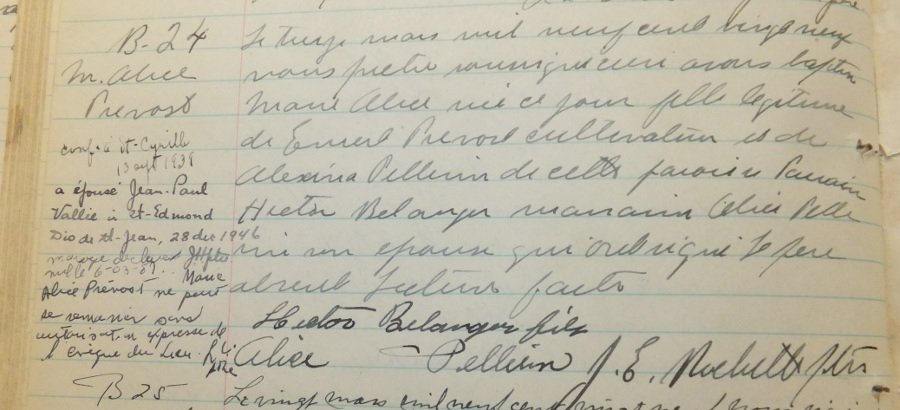 B-24
M. Alice
Prévost
conf. à St-Cyrille
13 sept 1938
a épousé Jean-Paul
Vallée à St-Edmond
Dio de St-Jean, 28 dec 1946
mariage déclaré
nul le 6-03-
Marie
Alice Prévost ne peut
se remarier sans
autorisation expresse de
l'évêque du Lieu.
Le treize mars mil neuf cent vingt neuf
nous prêtre soussigné curé avons baptisé
Marie Alice née ce jour fille légitime
de Ernest Prévost cultivateur et de
Alexina Pellerin de cette paroisse Parrain
Hector Belanger marraine Alice Pelle
rin son épouse qui ont signé le père
absent Lecture faite
Hector Belanger fils
Alice Pellerin J. E. Rochette ptre
B 25
Le vingt mars mil neuf cent vingt